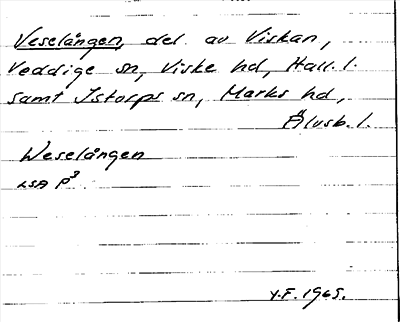 Veselången, del av Viskan,
Veddige sn, Viske hd, Hall. l.
samt Istorps sn, Marks hd,
Älvsb. l.
Weselången
LSA P³
Y.F. 1965.